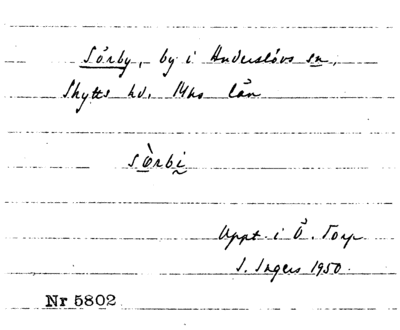 Sörby, by i Anderslövs sn,
Skytts hd. Mhs län
sÒrbi
Uppt. i Ö. Torp
I. Ingers 1950.
Nr 5802